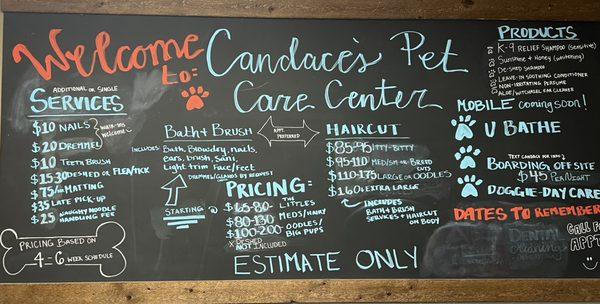 Welcome
to:
Candace's Pet
Care Center
ADDITIONAL OR SINGLE
SERVICES
$10 NAILS
$20 DREMMEL
WALK-INS
WELCOME
$10 TEETH BRUSH
$15-30 DESHED OR FLEA/TICK
$75/HR MATTING
$35 LATE PICK-UP
$25 NAUGHTY NOODLE
HANDLING FEE
PRICING BASED ON
4=6 WEEK SCHEDULE
BATH + BRUSH
INCLUDES:
BATH, BLOWDRY, NAILS,
EARS, BRUSH, SANI,
LIGHT TRIM FACE/FEET
DREMMEL/GLANDS BY REQUEST
STARTING @
APPT.
PREFERRED
PRICING:
$65-80 THE LITTLES
$80-130 MEDS/HAIRY
$100-200 OODLES/
BIG PUPS
X DESHED
NOT INCLUDED
HAIRCUT
$85-95 ITTY-BITTY
$95-110 MEDISM OR BREED
CUTS
$110-175 LARGE OR OODLES
$160 EXTRA LARGE
INCLUDES
BATH + BRUSH
SERVICES + HAIRCUT
ON BODY
ESTIMATE ONLY
PRODUCTS
K-9 RELIEF SHAMPOO (SENSITIVE)
SUNSHINE + HONEY (WHITENING)
DE-SHED SHAMPOO
LEAVE-IN SOOTHING CONDITIONER
NON-IRRITATING PERFUME
ALOE/WITCHHAZEL EAR CLEANER
MOBILE coming soon!
U BATHE
TEXT CANDACE FOR INFO
BOARDING, OFFSITE
$45 PER/NIGHT
DOGGIE-DAY CARE
DATES TO REMEMBER
DENTAL
cleaning
CALL FOR
APPT